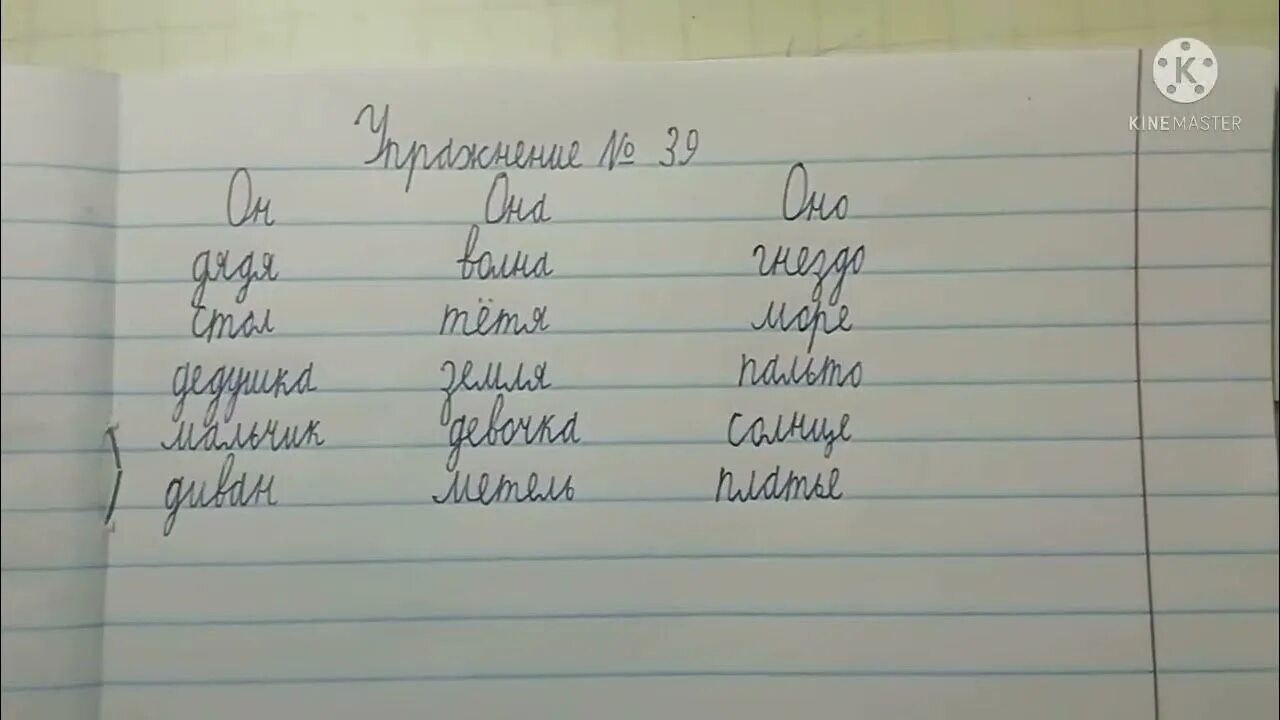 Упражнение № 39
Он Она Оно
дядя волна гнездо
стол тётя море
дедушка земля пальто
мальчик девочка солнце
диван метель платье
K
KINEMASTER